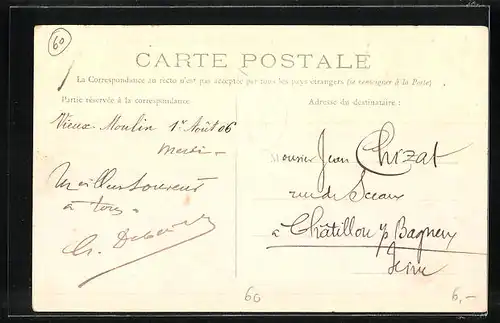 60
CARTE POSTALE
La Correspondance au recto n'est pas acceptée par tous les pays étrangers (se renseigner à la Poste)
Partie réservée à la correspondance
Adresse du destinataire :
Vieux-Moulin 1er Août 06
Merci -
Meilleurs souvenirs
à tous
Ch.
Monsieur Jean Chizat
rue de Sceaux
à Châtillon s/s Bagneux
Seine
60
6,-